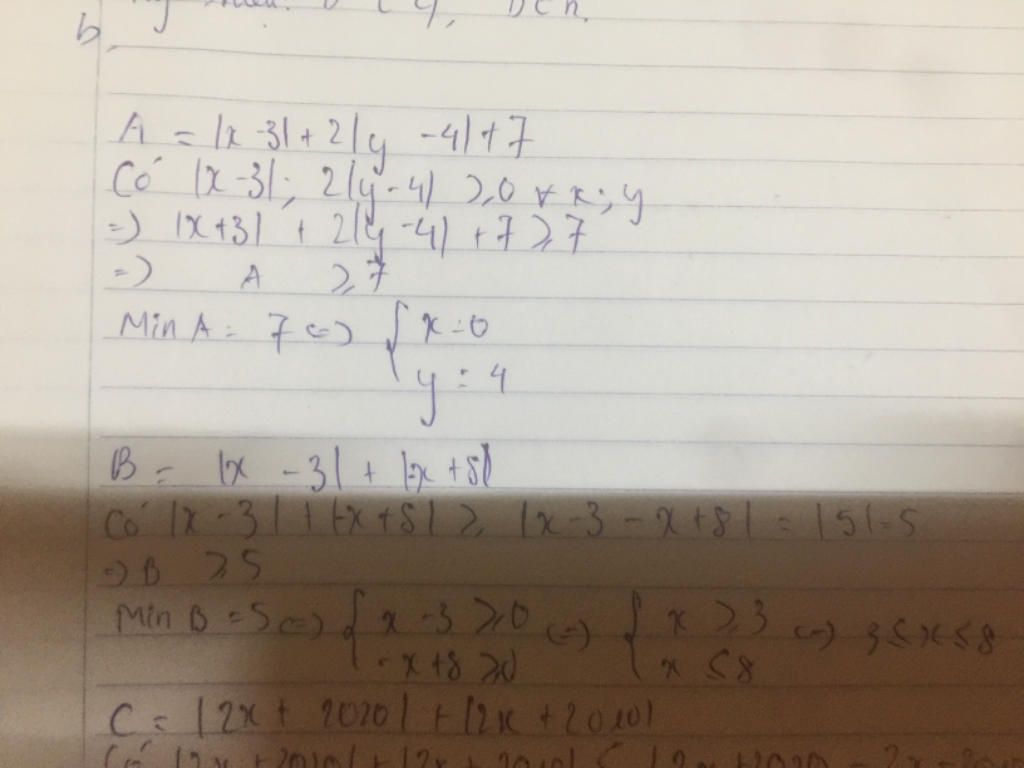 b,
A = |x - 3| + 2|y - 4| + 7
Có |x - 3|; 2|y - 4| ≥ 0 ∀ x; y
=> |x + 3| + 2|y - 4| + 7 ≥ 7
=> A ≥ 7
Min A = 7 <=> { x = 0
y = 4
B = |x - 3| + |-x + 8|
Có |x - 3| + |-x + 8| ≥ |x - 3 - x + 8| = |5| = 5
=> B ≥ 5
Min B = 5 <=> { x - 3 ≥ 0 <=> { x ≥ 3 <=> 3 ≤ x ≤ 8
- x + 8 ≥ 0 x ≤ 8
C = |2x + 2020| + |2x + 2010|